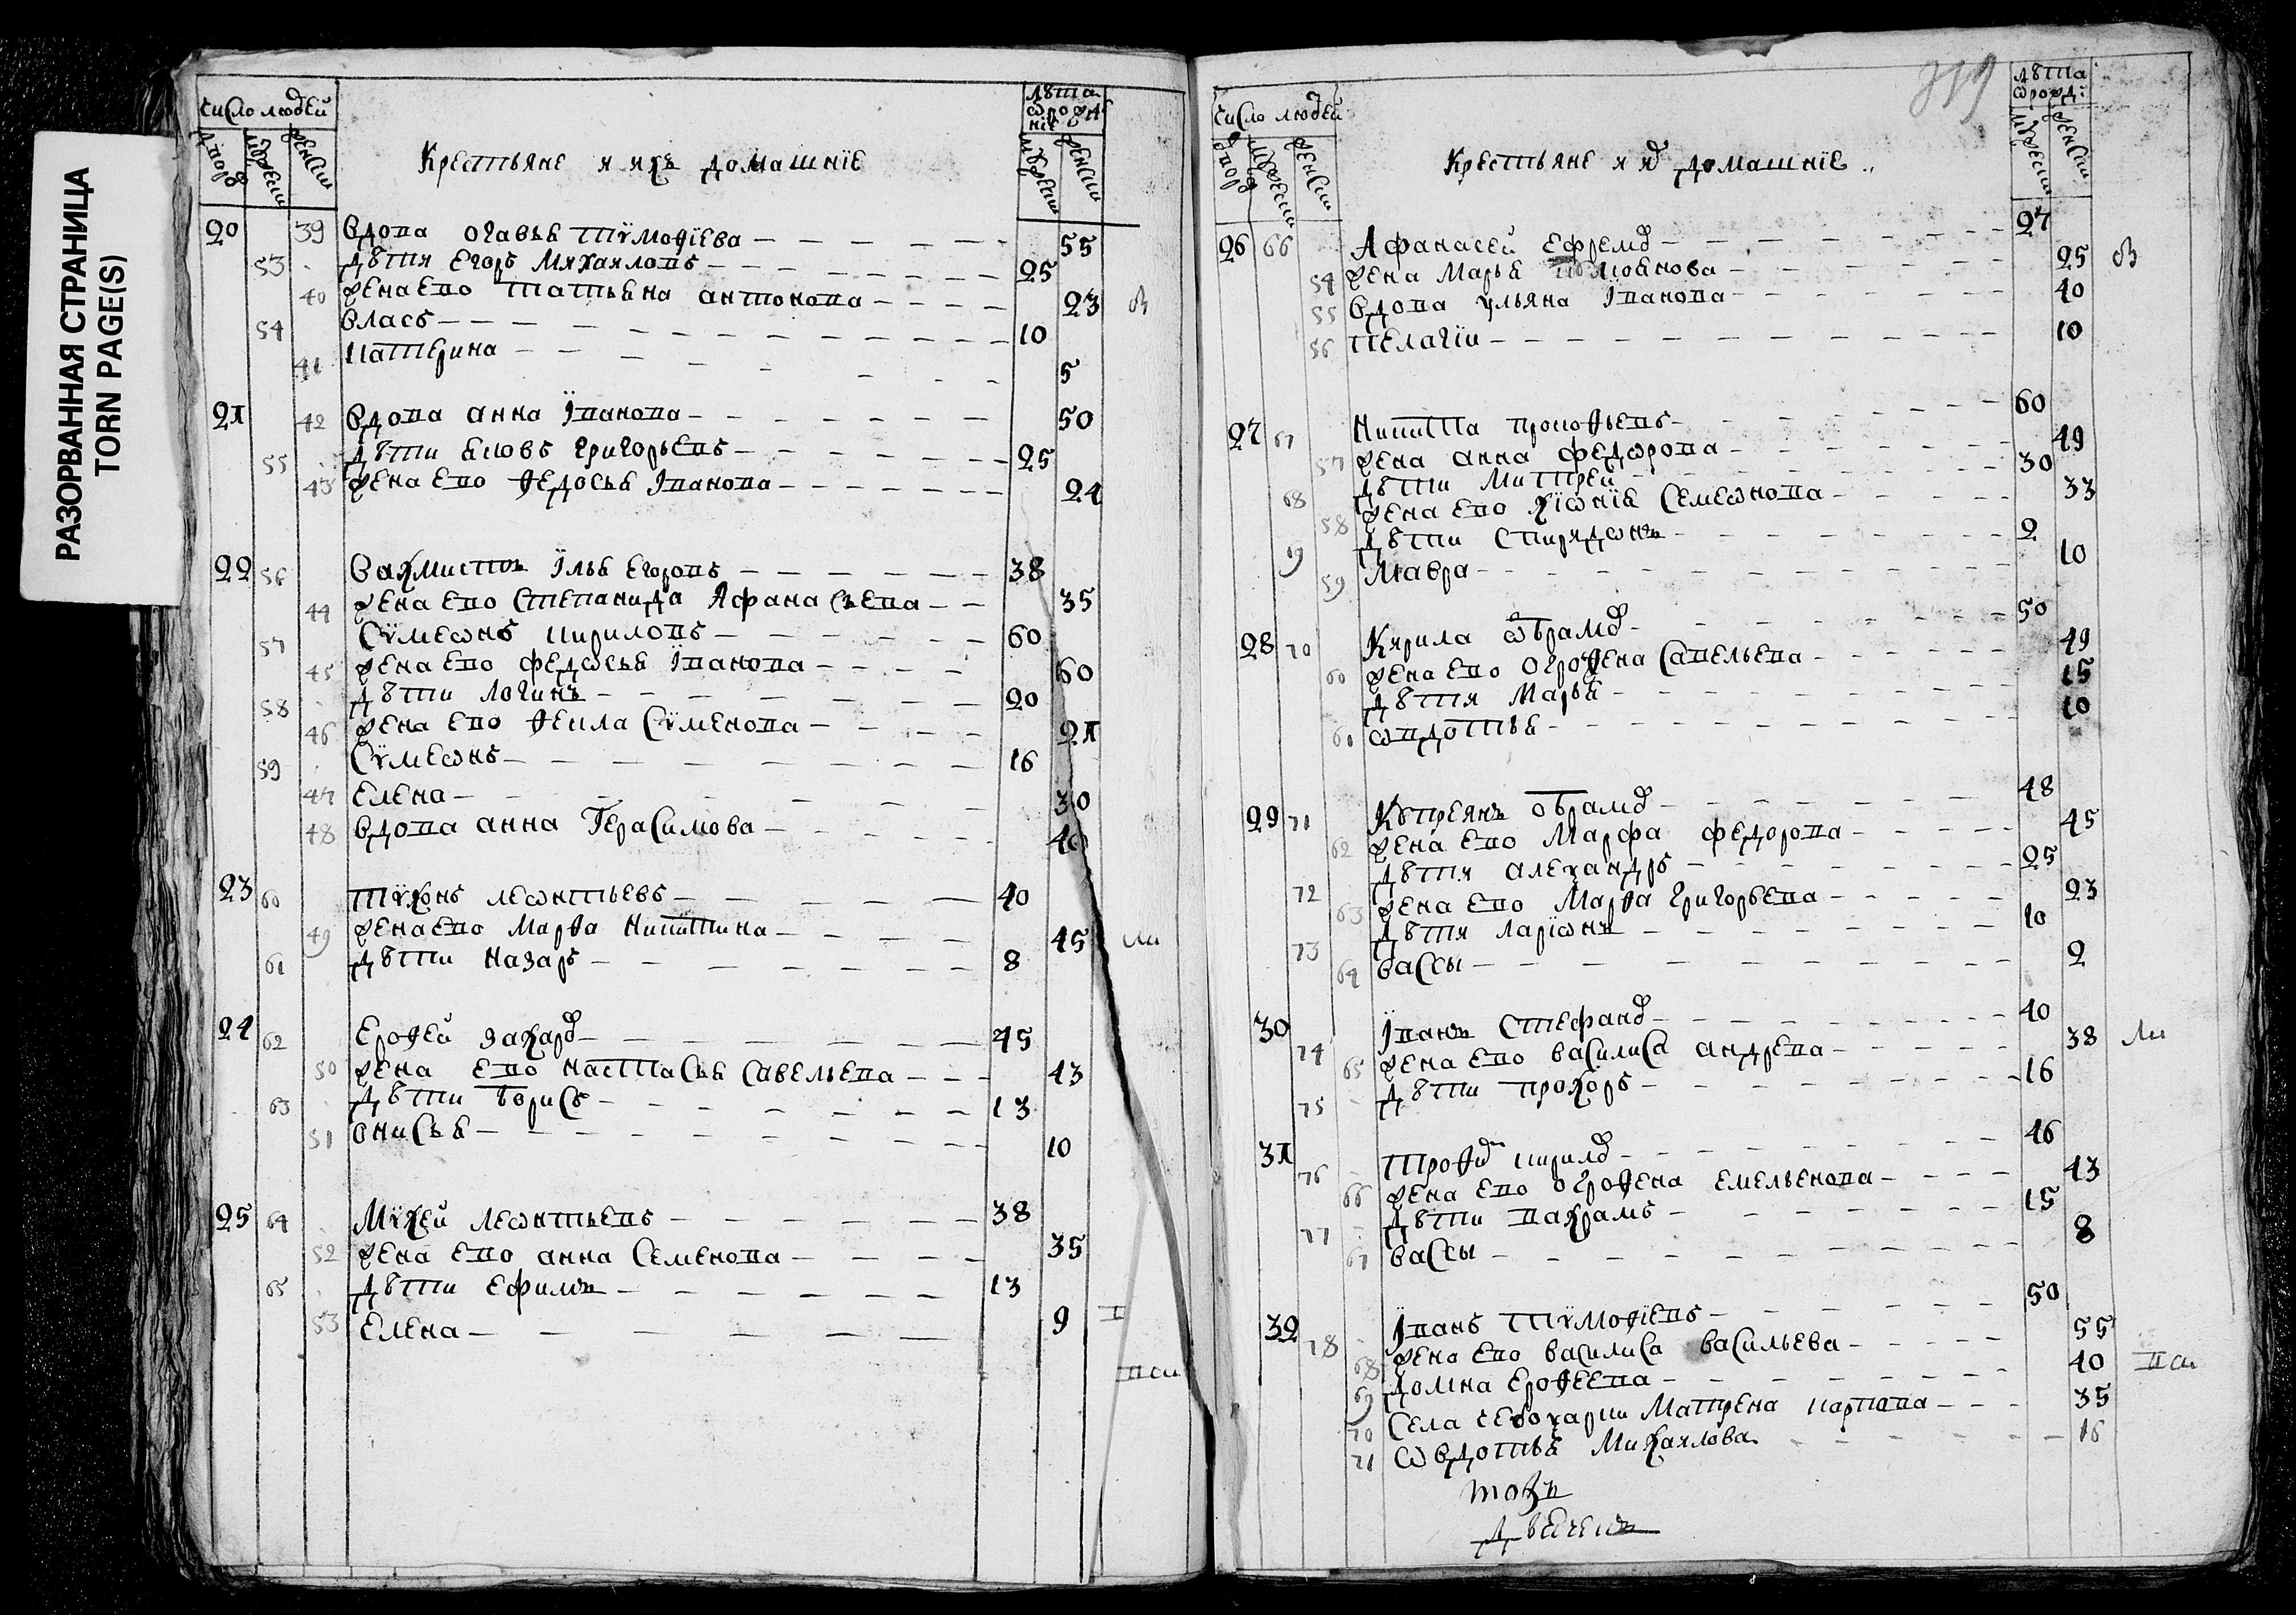 РАЗОРВАННАЯ СТРАНИЦА
TORN PAGE(S)
число людей
Крестьяне и ихъ домашнїе
лѣта
ѿ рожде
нїѧ
20 39 Вдова Огавья Тѷмоѳїева 55
53 дѣти Егоръ Михаиловъ 25
40 жена ево Татьяна Антонова 23 В
54 Власъ 10
41 Катерина 5
21 42 Вдова Анна Їванова 50
55 дѣти Яковъ Григорьевъ 25
43 жена ево Ѳедосья Їванова 24
22 56 Вахмистръ Їлья Егоровъ 38
44 жена ево Степанида Афанасьева 35
57 Сѷмеѡнъ Кириловъ 60
45 жена ево Федѡсья Їванова 60
58 дѣти Логинъ 20
46 жена ево Ѳекла Сѷменова 21
59 Сѷмеѡнъ 16
47 Елена 30
48 Вдова Анна Герасимова 40
23 60 Тѷхонъ Леѡнтьевъ 40
49 жена ево Марѳа Никитина 45 ли
61 дѣти Назаръ 8
24 62 Ероѳей Захаро 45
50 жена ево Настасья Савельева 43
63 дѣти Борисъ 13
51 Онисья 10
25 64 Мѷхей Леѡнтьевъ 38
52 жена ево Анна Семенова 35
65 дѣти Ефимъ 13
53 Елена 9
число людей
Крестьяне и и домашнїе
лѣта
ѿ рожд:
26 66 Афанасей Ефремо 27
54 жена Марья 25 В
55 Вдова Ульяна Їванова 40
56 Пелагїи 10
27 67 Никита Прокоѳьевъ 60
57 жена Анна Федѡрова 49
68 дѣти Митрей 30
58 жена ево Хїѡнїя Семеѡнова 33
69 дѣти Спиридѡнъ 2
59 Мавра 10
28 70 Кирила Ѡбрамо 50
60 жена ево Огроѳена Савельева 49
дѣти Марья 15
61 Ѡвдотья 10
29 71 Купреянъ Обрамо 48
62 жена ево Марфа Федорова 45
72 дѣти Алеѯандръ 25
63 жена ево Марѳа Григорьева 23
73 дѣти Ларїѡнъ 10
64 Вассы 2
30 74 Їванъ Стефано 40
65 жена ево Василиса Андрева 38 ли
75 дѣти Прохоръ 16
31 76 Троѳи Кирило 46
66 жена ево Огроѳена Емельенова 43
77 дѣти Пахрамъ 15
67 Вассы 8
32 78 Їванъ Тѷмоѳїевъ 50
68 жена ево Василиса Васильева 55
69 Домна Ероѳеева 40
70 Села Чебоѯарки Матрена Карпова 35
71 Ѡвдотья Михаилова 16